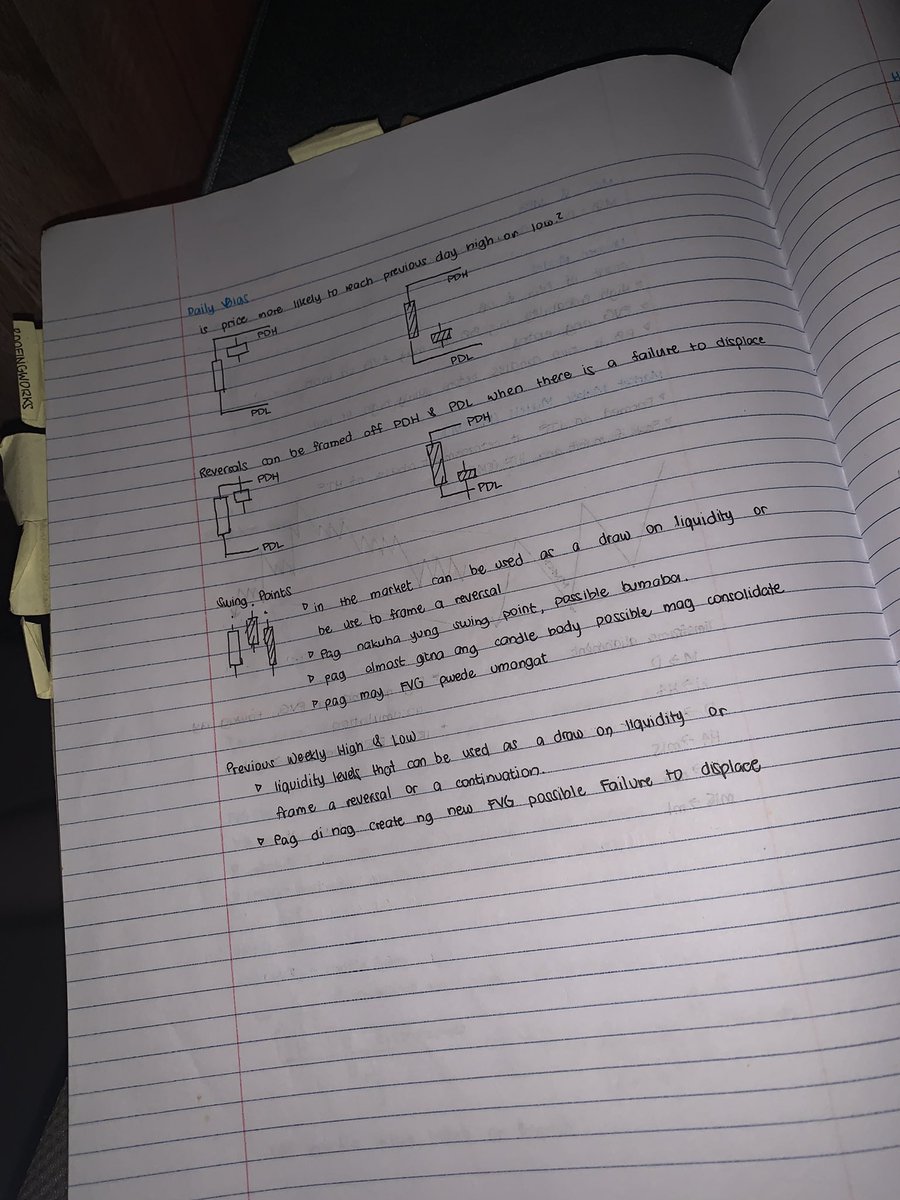 Daily Bias
is price more likely to reach previous day high or low?
PDH
PDL
PDH
PDL
Reversals can be framed off PDH & PDL when there is a failure to displace
PDH
PDL
PDH
PDL
Swing Points
in the market can be used as a draw on liquidity or
be use to frame a reversal
Pag nakuha yung swing point, possible bumaba.
pag almost gitna ang candle body possible mag consolidate
pag may FVG pwede umangat
Previous Weekly High & Low
liquidity levels that can be used as a draw on liquidity or
frame a reversal or a continuation.
Pag di nag create ng new FVG possible Failure to displace